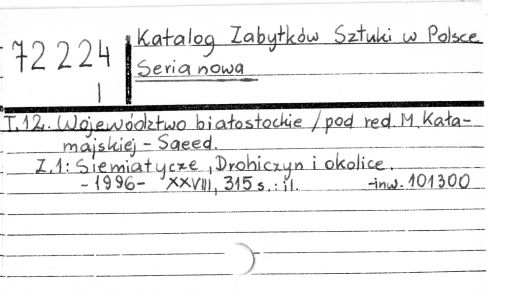 72 224
I
Katalog Zabytków Sztuki w Polsce
Seria nowa
T.12. Województwo białostockie / pod red. M. Kała-
majskiej-Saeed.
Z.1: Siemiatycze, Drohiczyn i okolice.
- 1996 - XXVIII, 315 s.: il. -inw. 101300